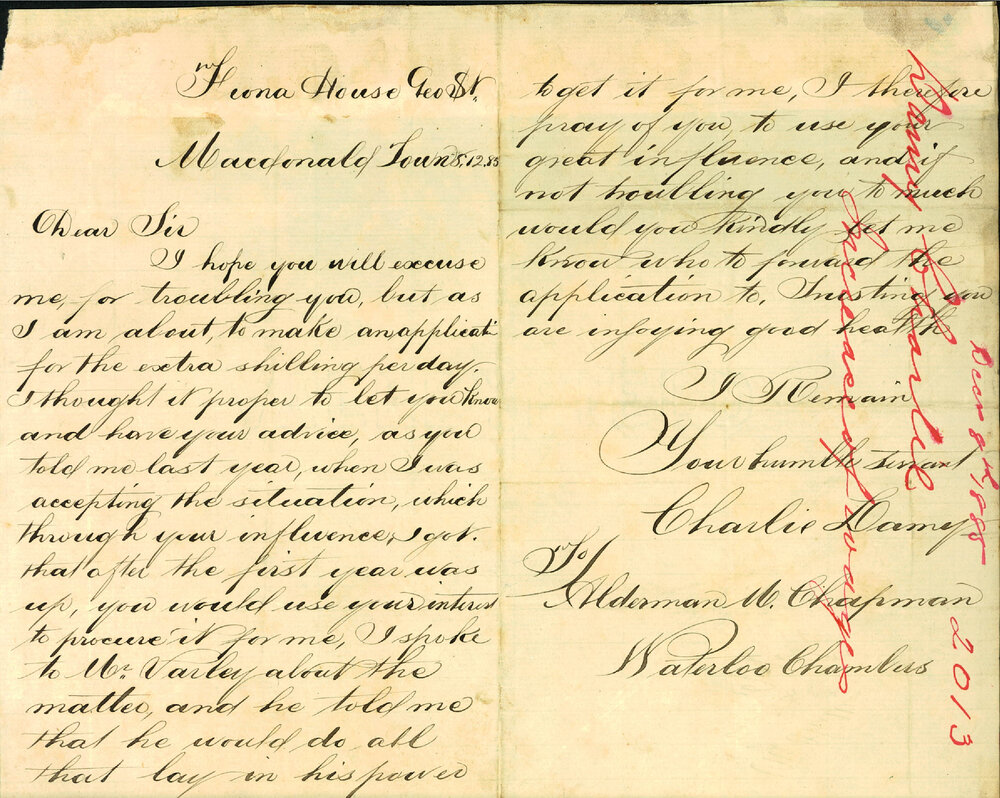 Fiona House Geo St.
Macdonald Town 8.12.85
Dear Sir
I hope you will excuse
me, for troubling you, but as
I am about, to make an applicati
for the extra shilling per day.
I thought it proper to let you know
and have your advice, as you
told me last year, when I was
accepting the situation, which
through your influence, I got.
that after the first year was
up, you would use your interest
to procure it for me, I spoke
to Mr. Varley about the
matter, and he told me
that he would do all
that lay in his power
to get it for me, I therefore
pray of you, to use your
great influence, and if
not troubling you to much
would you kindly let me
know who to forward the
application to, Trusting you
are injoying good health
I Remain
Your humble servant
Charlie Damy
To
Alderman M. Chapman
Waterloo Chambers
Damy Charlie
Increase of wages
Decr 9th 1885
2013